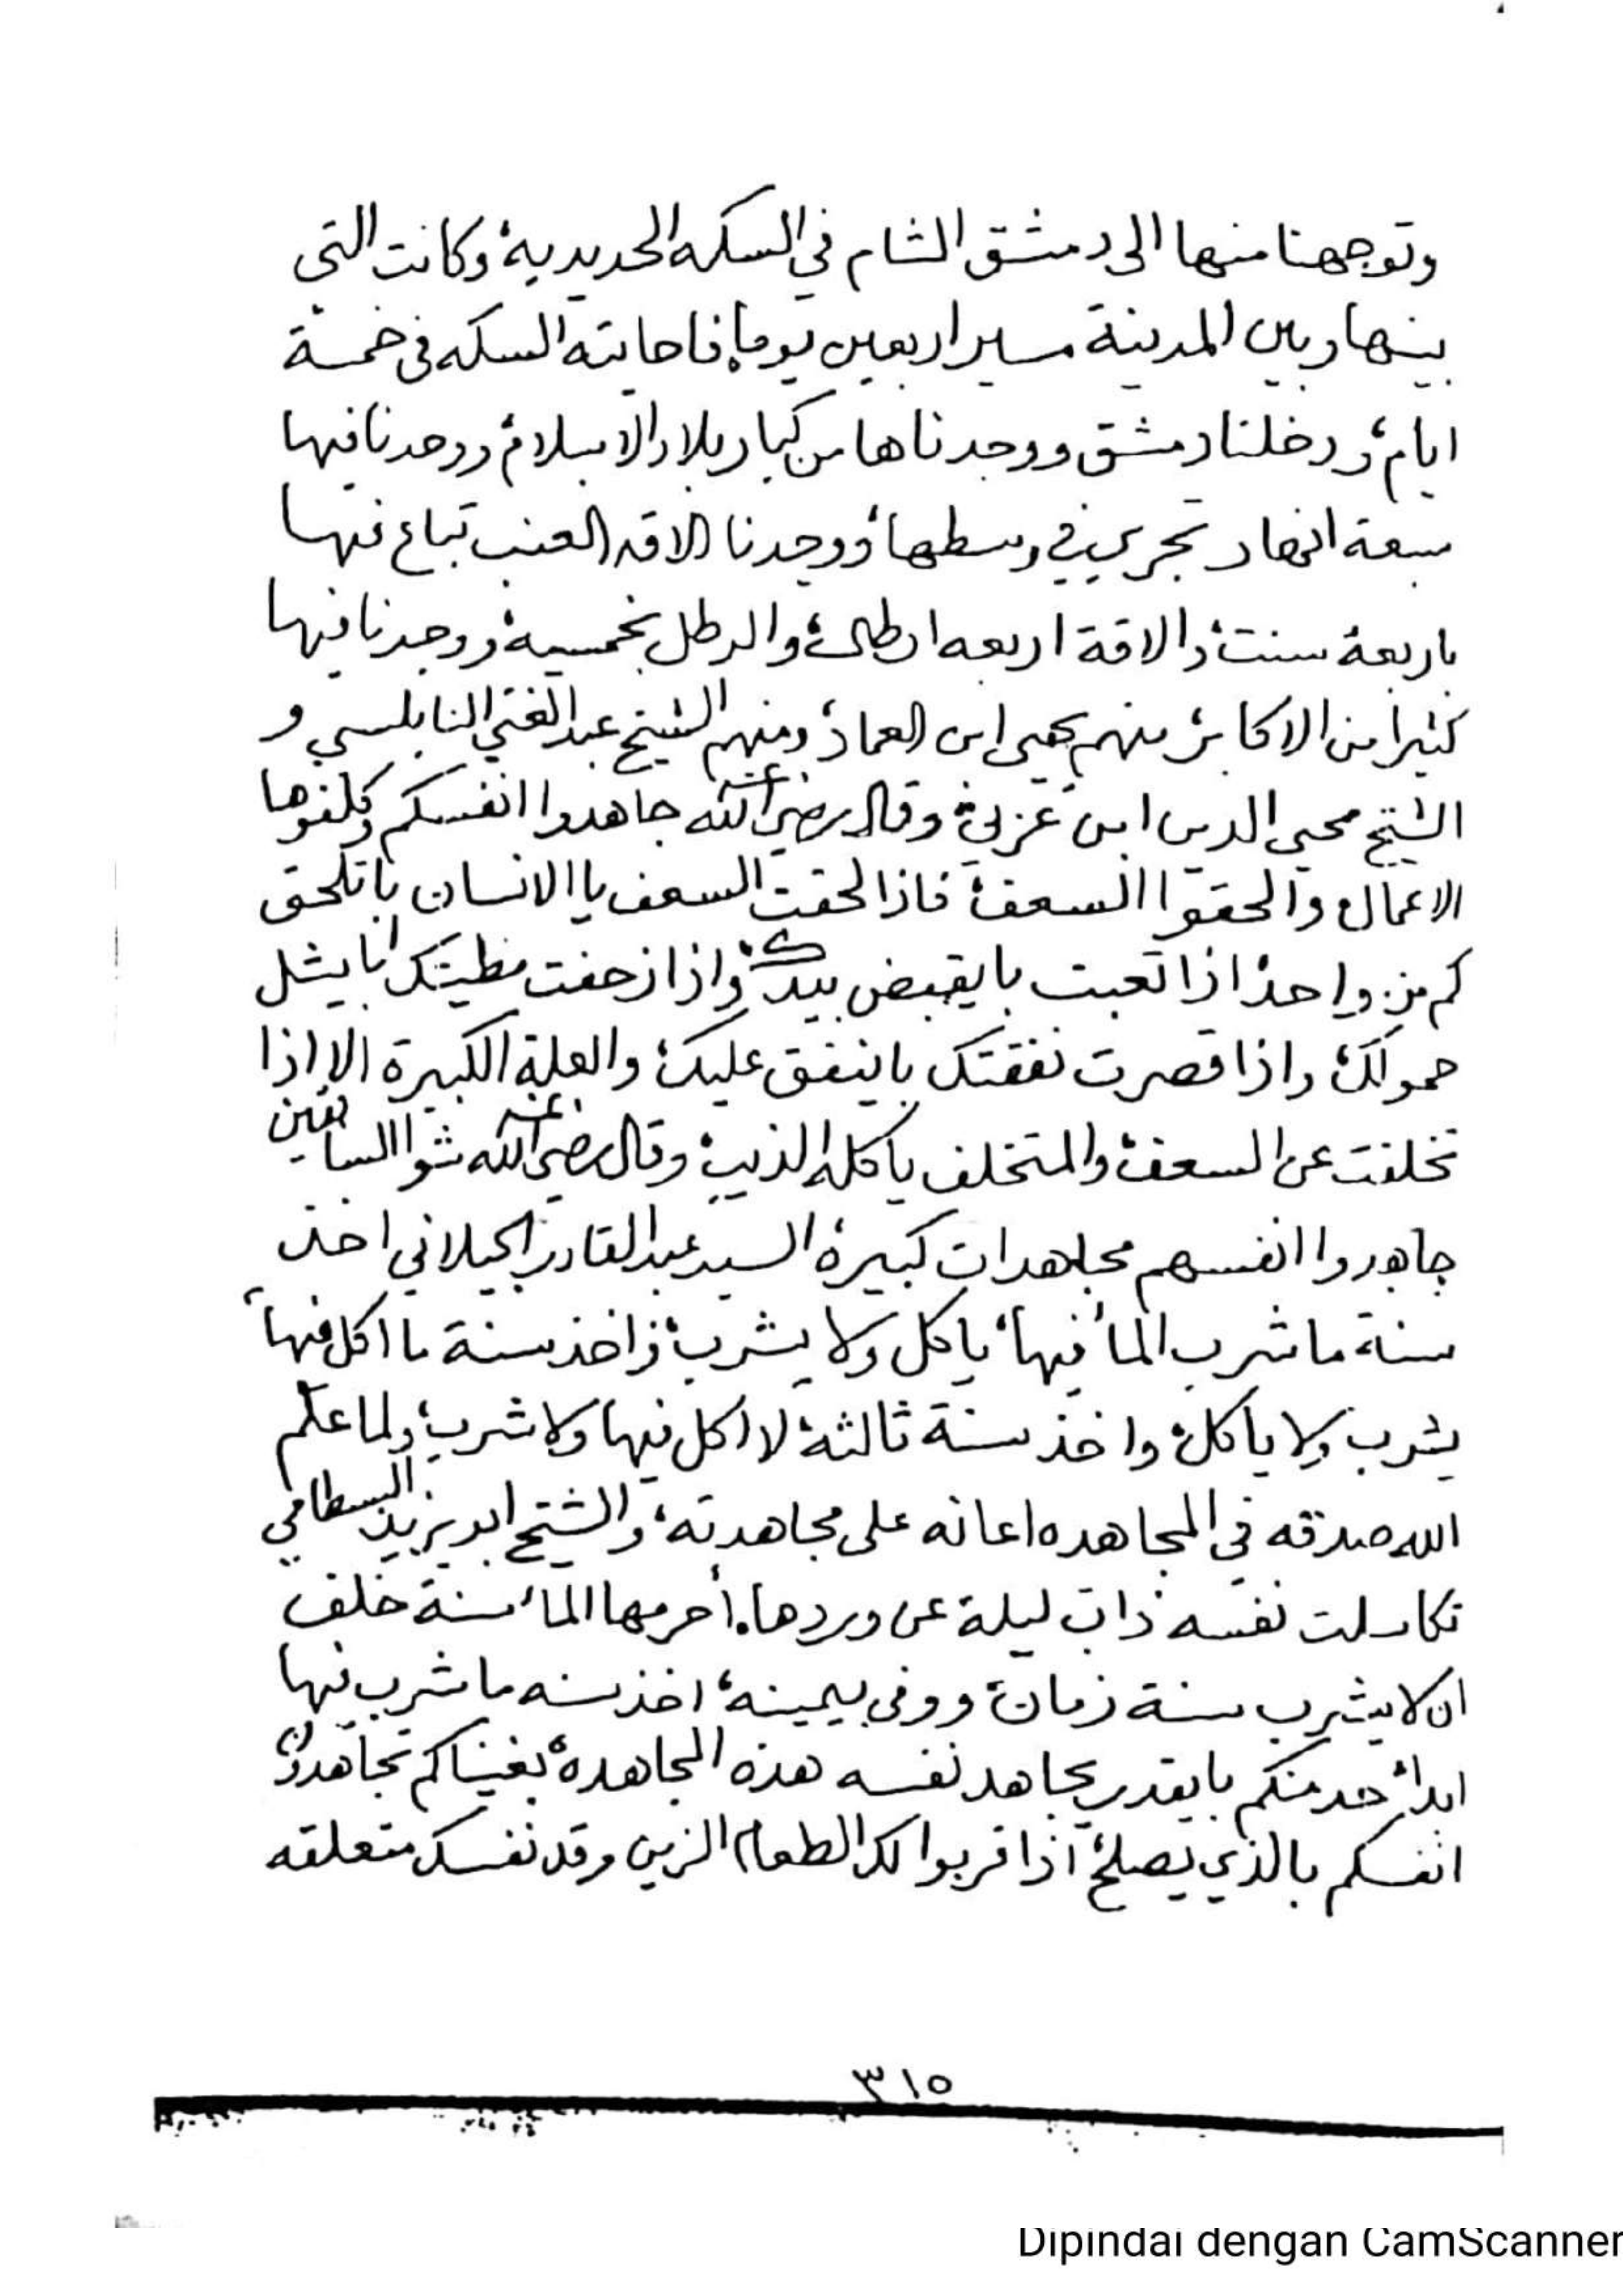 وتوجهنا منها الى دمشق الشام في السكه الحديدية، وكانت التي
بينها وبين المدينة مسير اربعين يوما، فاحانته السكه في خمسة
ايام، ودخلنا دمشق ووجدناها من كبار بلاد الاسلام، ووجدنا فيها
سبعة انهار تجري في وسطها، ووجدنا الاقه العنب تباع فيها
باربعة سنت، والاقة اربعه ارطال، والرطل بخمسيه، ووجدنا فيها
كثيرا من الاكابر، منهم يحيى ابن العماد، ومنهم الشيخ عبد الغني النابلسي و
الشيخ محيي الدين ابن عربي، وقال رضي الله عنه جاهدوا انفسكم وكلفوها
الاعمال، والحقوا السعف، فاذا لحقت السعف يا الانسان با تلحق
كم من واحد، اذا تعبت با يقبض بيدك، واذا زحفت مطيتك با يشل
حمولك، واذا قصرت نفقتك با ينفق عليك، والعلة الكبيرة الا اذا
تخلفت عن السعف، والمتخلف ياكله الذيب، وقال رضي الله عنه شوا السابقين
جاهدوا انفسهم مجاهدات كبيرة، السيد عبد القادر الجيلاني اخذ
سنة ما شرب الماء فيها، ياكل ولا يشرب، واخذ سنة ما اكل فيها،
يشرب ولا ياكل، واخذ سنة ثالثة، لا اكل فيها ولا شرب، ولما علم
الله صدقه في المجاهده اعانه على مجاهدته، والشيخ ابو يزيد البسطامي
تكاسلت نفسه ذات ليلة عن وردها، أحرمها الماء سنة خلف
ان لا يشرب سنة زمان، ووفى بيمينه، اخذ سنه ما شرب فيها
ابدا، حد منكم با يقدر يجاهد نفسه هذه المجاهدة، بغيناكم تجاهدون
انفسكم بالذي يصلح، اذا قربوا لك الطعام الزين وقد نفسك متعلقه
٣١٥
Dipindai dengan CamScanner